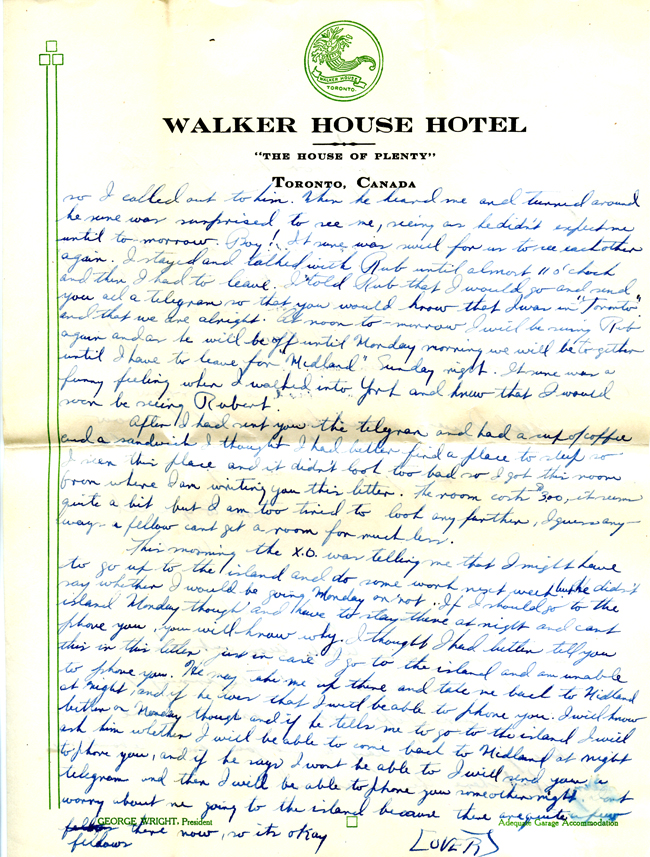 WALKER HOUSE
TORONTO.
WALKER HOUSE HOTEL
"THE HOUSE OF PLENTY"
TORONTO, CANADA
so I called out to him. When he heard me and turned around
he sure was surprised to see me, seeing as he didn't expect me
until to-morrow. Boy! It sure was swell for us to see each other
again. I stayed and talked with Rub until almost 11 o'clock
and then I had to leave. I told Rub that I would go and send
you all a telegram so that you would know that I was in "Toronto"
and that we are alright. At noon to-morrow I will be seeing Rub
again and as he will be off until Monday morning we will be to-gether
until I have to leave for "Midland" Sunday night. It sure was a
funny feeling when I walked into York and knew that I would
soon be seeing Rubert.
After I had sent you the telegram and had a cup of coffee
and a sandwich I thought I had better find a place to sleep so
I seen this place and it didn't look too bad so I got this room
from where I am writing you this letter. The room costs $3.00, it seems
quite a bit but I am too tired to look any farther, I guess any-
ways a fellow cant get a room for much less.
This morning the X.O. was telling me that I might have
to go up to the island and do some work next week but he didn't
say whether I would be going Monday or not. If I should go to the
island Monday though and have to stay there at night and cant
phone you, you will know why. I thought I had better tell you
this in this letter just in case I go to the island and am unable
to phone you. He may take me up there and take me back to Midland
at night, and if he does that I will be able to phone you. I will know
better on Monday though and if he tells me to go to the island I will
ask him whether I will be able to come back to Midland at night
to phone you, and if he says I wont be able to I will send you a
telegram and then I will be able to phone you some other night
worry about me going to the island because there are quite a few
fellows there now, so its okay
fellows
[OVER]
GEORGE WRIGHT, President
Adequate Garage Accommodation